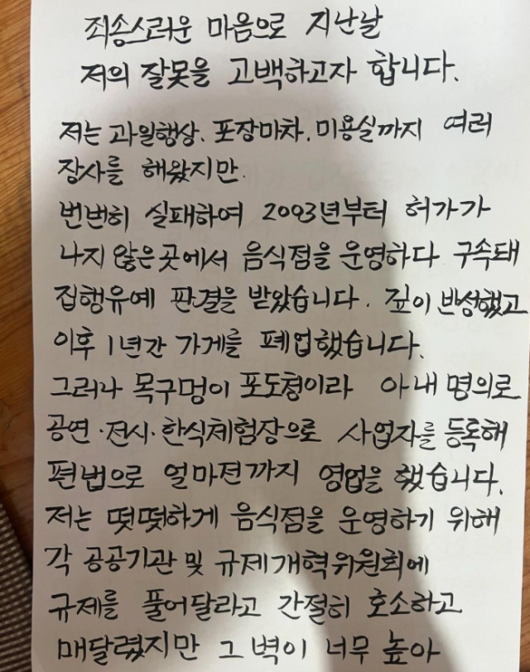 죄송스러운 마음으로 지난날
저의 잘못을 고백하고자 합니다.
저는 과일행상, 포장마차, 미용실까지 여러
장사를 해왔지만
번번히 실패하여 2003년부터 허가가
나지 않은 곳에서 음식점을 운영하다 구속돼
집행유예 판결을 받았습니다. 깊이 반성했고
이후 1년간 가게를 폐업했습니다.
그러나 목구멍이 포도청이라 아내 명의로
공연·전시·한식체험장으로 사업자를 등록해
편법으로 얼마전까지 영업을 했습니다.
저는 떳떳하게 음식점을 운영하기 위해
각 공공기관 및 규제개혁위원회에
규제를 풀어달라고 간절히 호소하고
매달렸지만 그 벽이 너무 높아